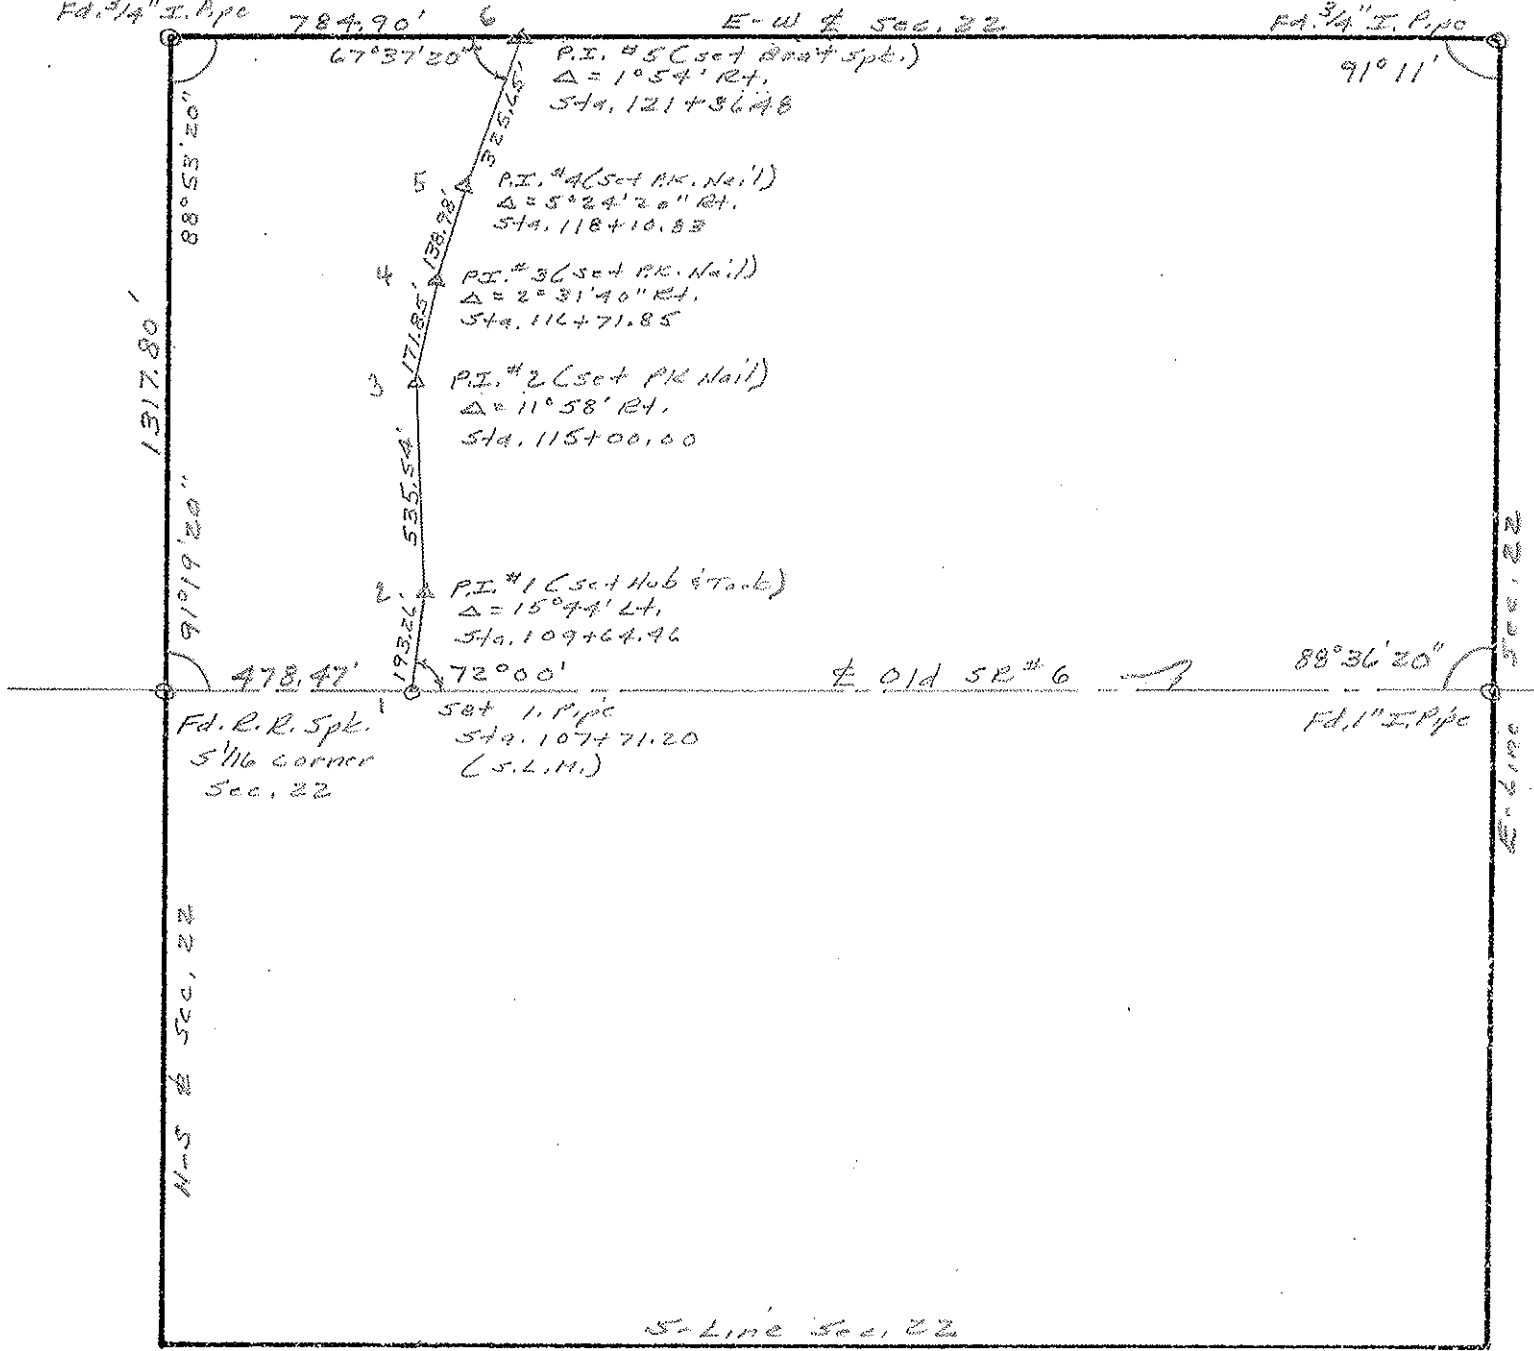 Fd. 3/4" I. Pipe
784.90'
6
E-W ℄ Sec. 22
Fd. 3/4" I. Pipe
67°37'20"
P.I. #5 (set Boat Spk.)
Δ = 1°54' Rt.
Sta. 121+36.48
91°11'
88°53'20"
325.65'
5
P.I. #4 (set P.K. Nail)
Δ = 5°24'20" Rt.
Sta. 118+10.83
138.98'
4
P.I. #3 (set P.K. Nail)
Δ = 2°31'40" Rt.
Sta. 116+71.85
171.85'
1317.80'
3
P.I. #2 (set PK Nail)
Δ = 11°58' Rt.
Sta. 115+00.00
535.54'
91°19'20"
2
P.I. #1 (set Hub & Tack)
Δ = 15°44' Lt.
Sta. 109+64.46
193.26
478.47'
72°00'
℄ Old SR #6
88°36'20"
1
Fd. R.R. Spk.
S 1/16 corner
Sec. 22
Set I. Pipe
Sta. 107+71.20
(S.L.M.)
Fd. 1" I. Pipe
E-Line Sec. 22
N-S ℄ Sec. 22
S-Line Sec. 22